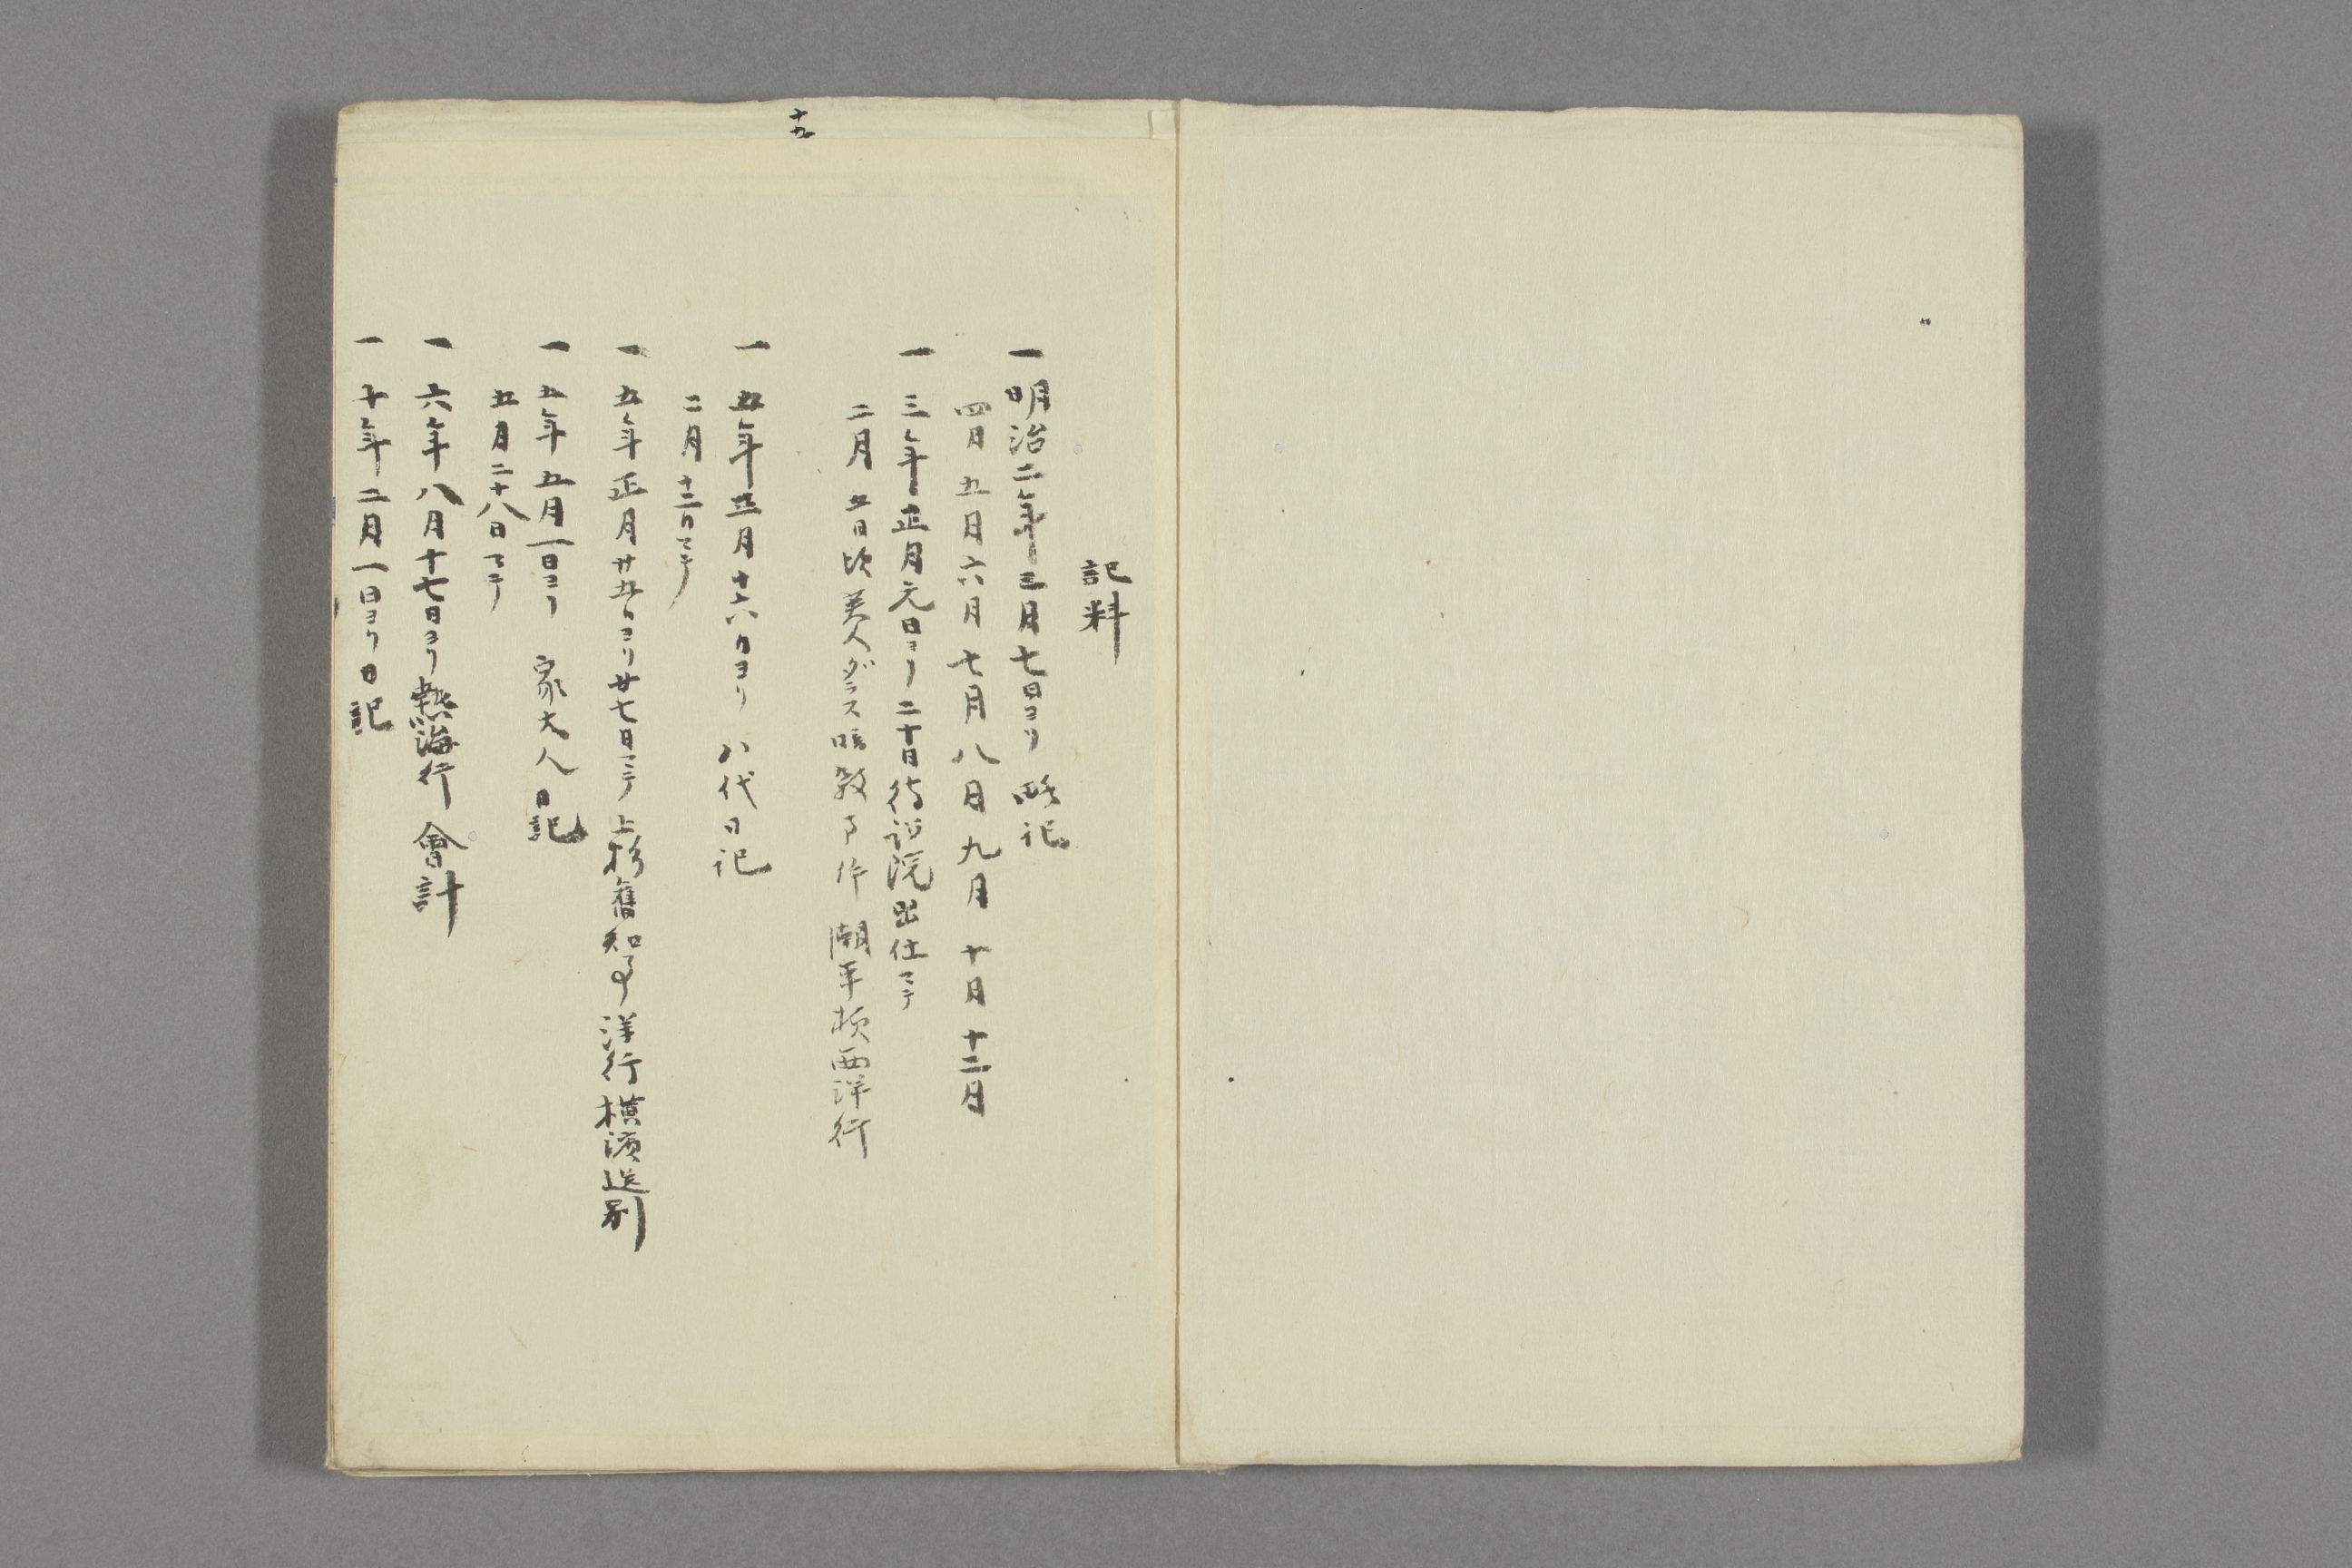 十九
記料
一 明治二年三月七日ヨリ 略記
四月 五月 六月 七月 八月 九月 十月 十二月
一 三年正月元日ヨリ二十日待詔院出仕マテ
二月 五日頃英人ダラス 西洋行
一 五年正月十六日ヨリ 八代日記
二月十二日マテ
一 五年正月廿五日ヨリ廿七日マテ 上杉舊知事洋行横濱送別
一 五年五月一日ヨリ 家大人日記
五月二十八日マテ
一 六年八月十七日ヨリ熱海行 會計
一 十年二月一日ヨリ日記